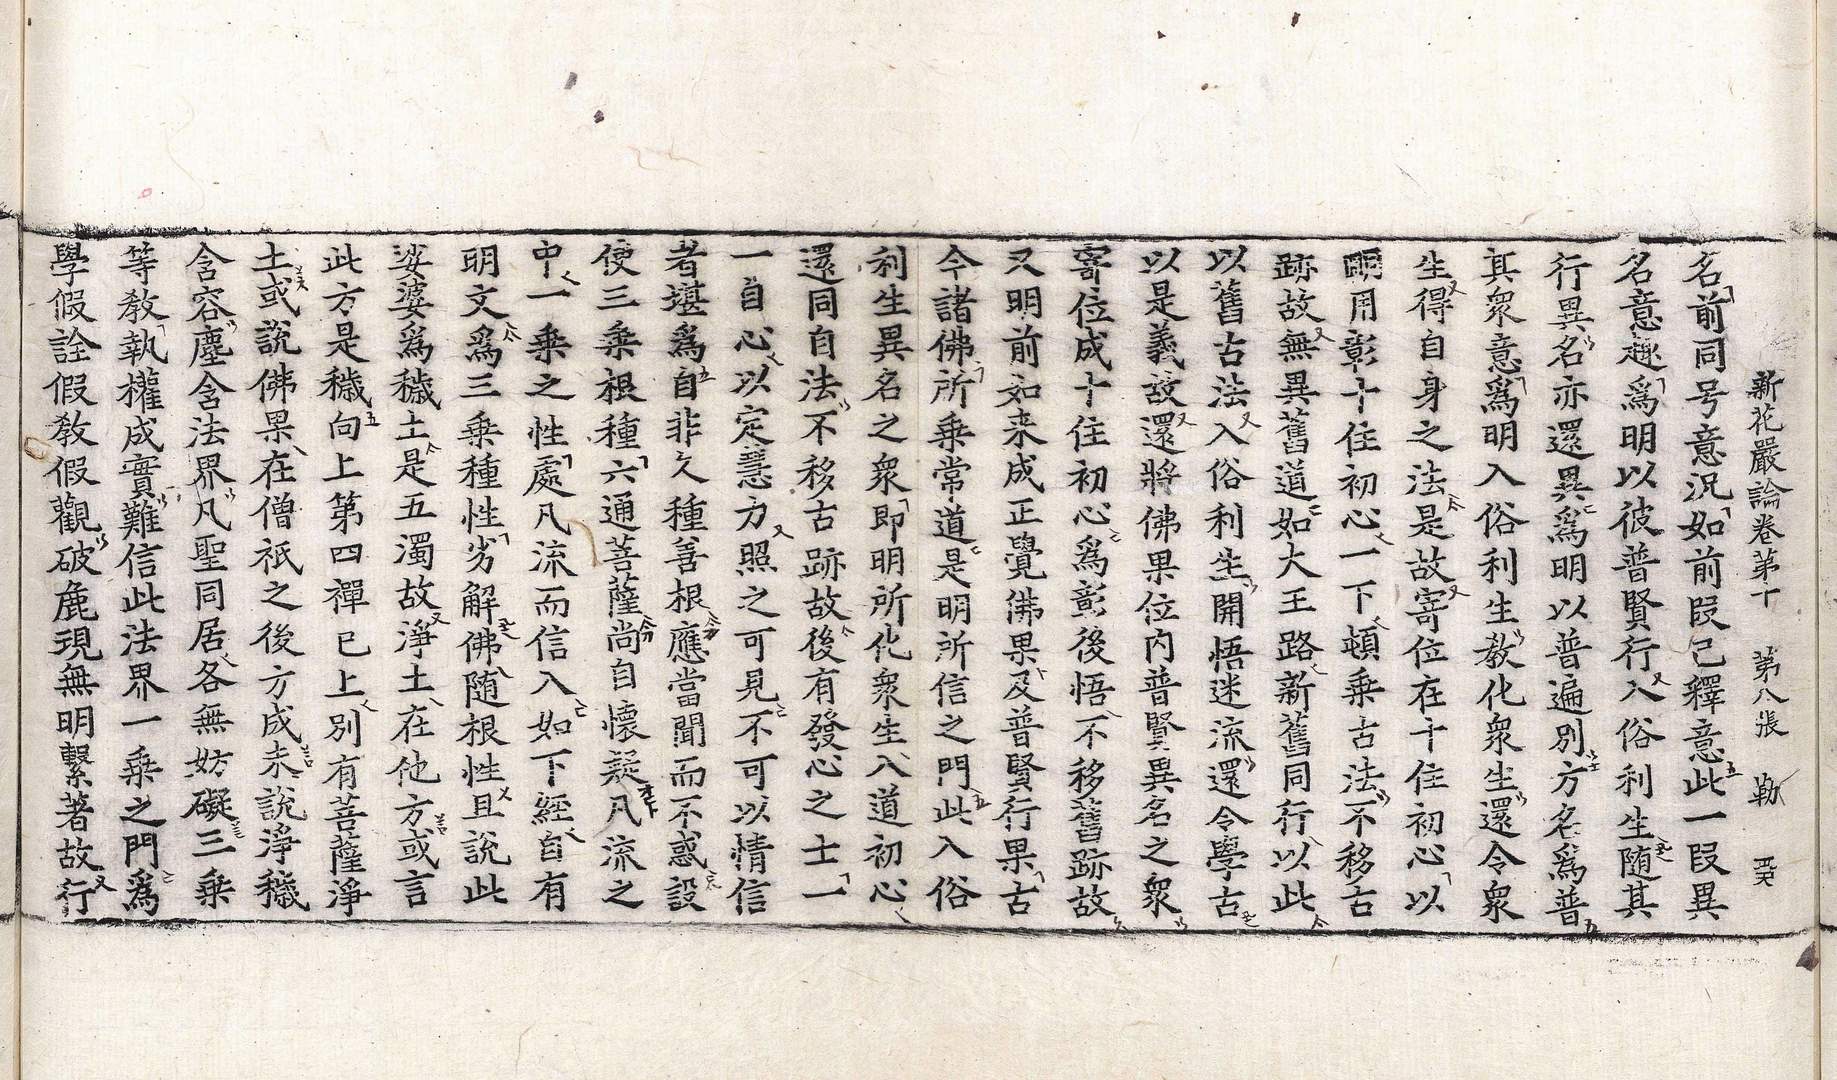 新花嚴論卷第十　第八張　勒
名前同号意况如前段已釋意此一段異
名意趣爲明以彼普賢行入俗利生随其
行異名亦還異爲明以普遍別方名爲普
其衆意爲明入俗利生教化衆生還令衆
生得自身之法是故寄位在十住初心以
明用彰十住初心一下頓乗古法不移古
跡故無異舊道如大王路新舊同行以此
以舊古法入俗利生開悟迷流還令學古
以是義故還將佛果位内普賢異名之衆
寄位成十住初心爲彰後悟不移舊跡故
又明前如来成正覺佛果及普賢行果古
今諸佛所乗常道是明所信之門此入俗
利生異名之衆即明所化衆生入道初心
還同自法不移古跡故後有發心之士一
一自心以定慧力照之可見不可以情信
者堪爲自非久種善根應當聞而不惑設
使三乗根種六通菩薩尚自懷疑凡流之
中一乗之性處凡流而信入如下經自有
明文爲三乗種性劣解佛随根性且說此
娑婆爲穢土是五濁故淨土在他方或言
此方是穢向上第四禪已上別有菩薩淨
土或說佛果在僧祇之後方成未說淨穢
含容塵含法界凡聖同居各無妨礙三乗
等教執權成實難信此法界一乗之門爲
學假詮假教假觀破麁現無明繫著故行